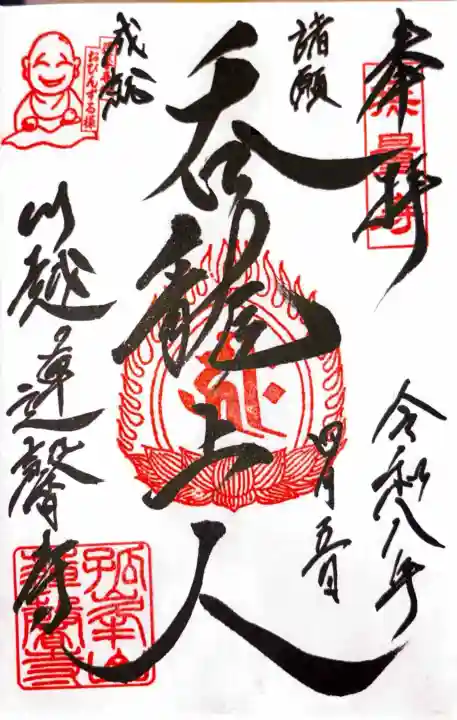 奉拝
令和八年
四月五日
諸願
呑龍上人
成就
川越蓮馨寺
おびんずる様
孤峯山
蓮馨寺